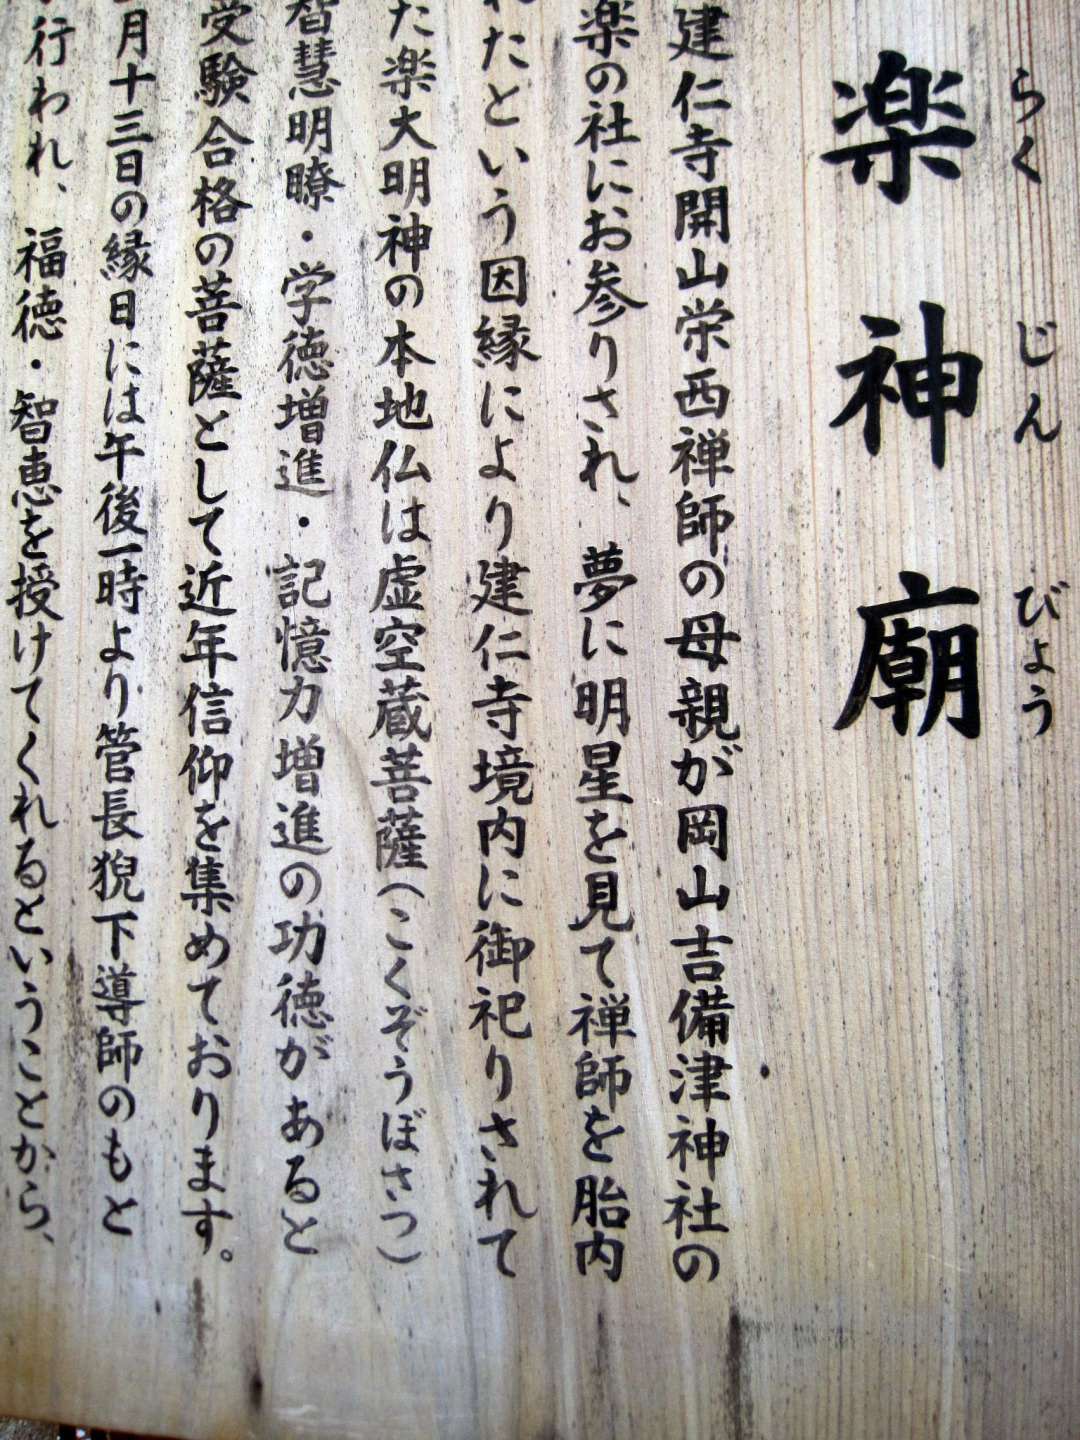 らくじんびょう
楽神廟
建仁寺開山栄西禅師の母親が岡山吉備津神社の
楽の社にお参りされ、夢に明星を見て禅師を胎内
れたという因縁により建仁寺境内に御祀りされて
た楽大明神の本地仏は虚空蔵菩薩(こくぞうぼさつ)
智慧明瞭・学徳増進・記憶力増進の功徳があると
受験合格の菩薩として近年信仰を集めております。
月十三日の縁日には午後一時より管長猊下導師のもと
行われ、福徳・智恵を授けてくれるということから、